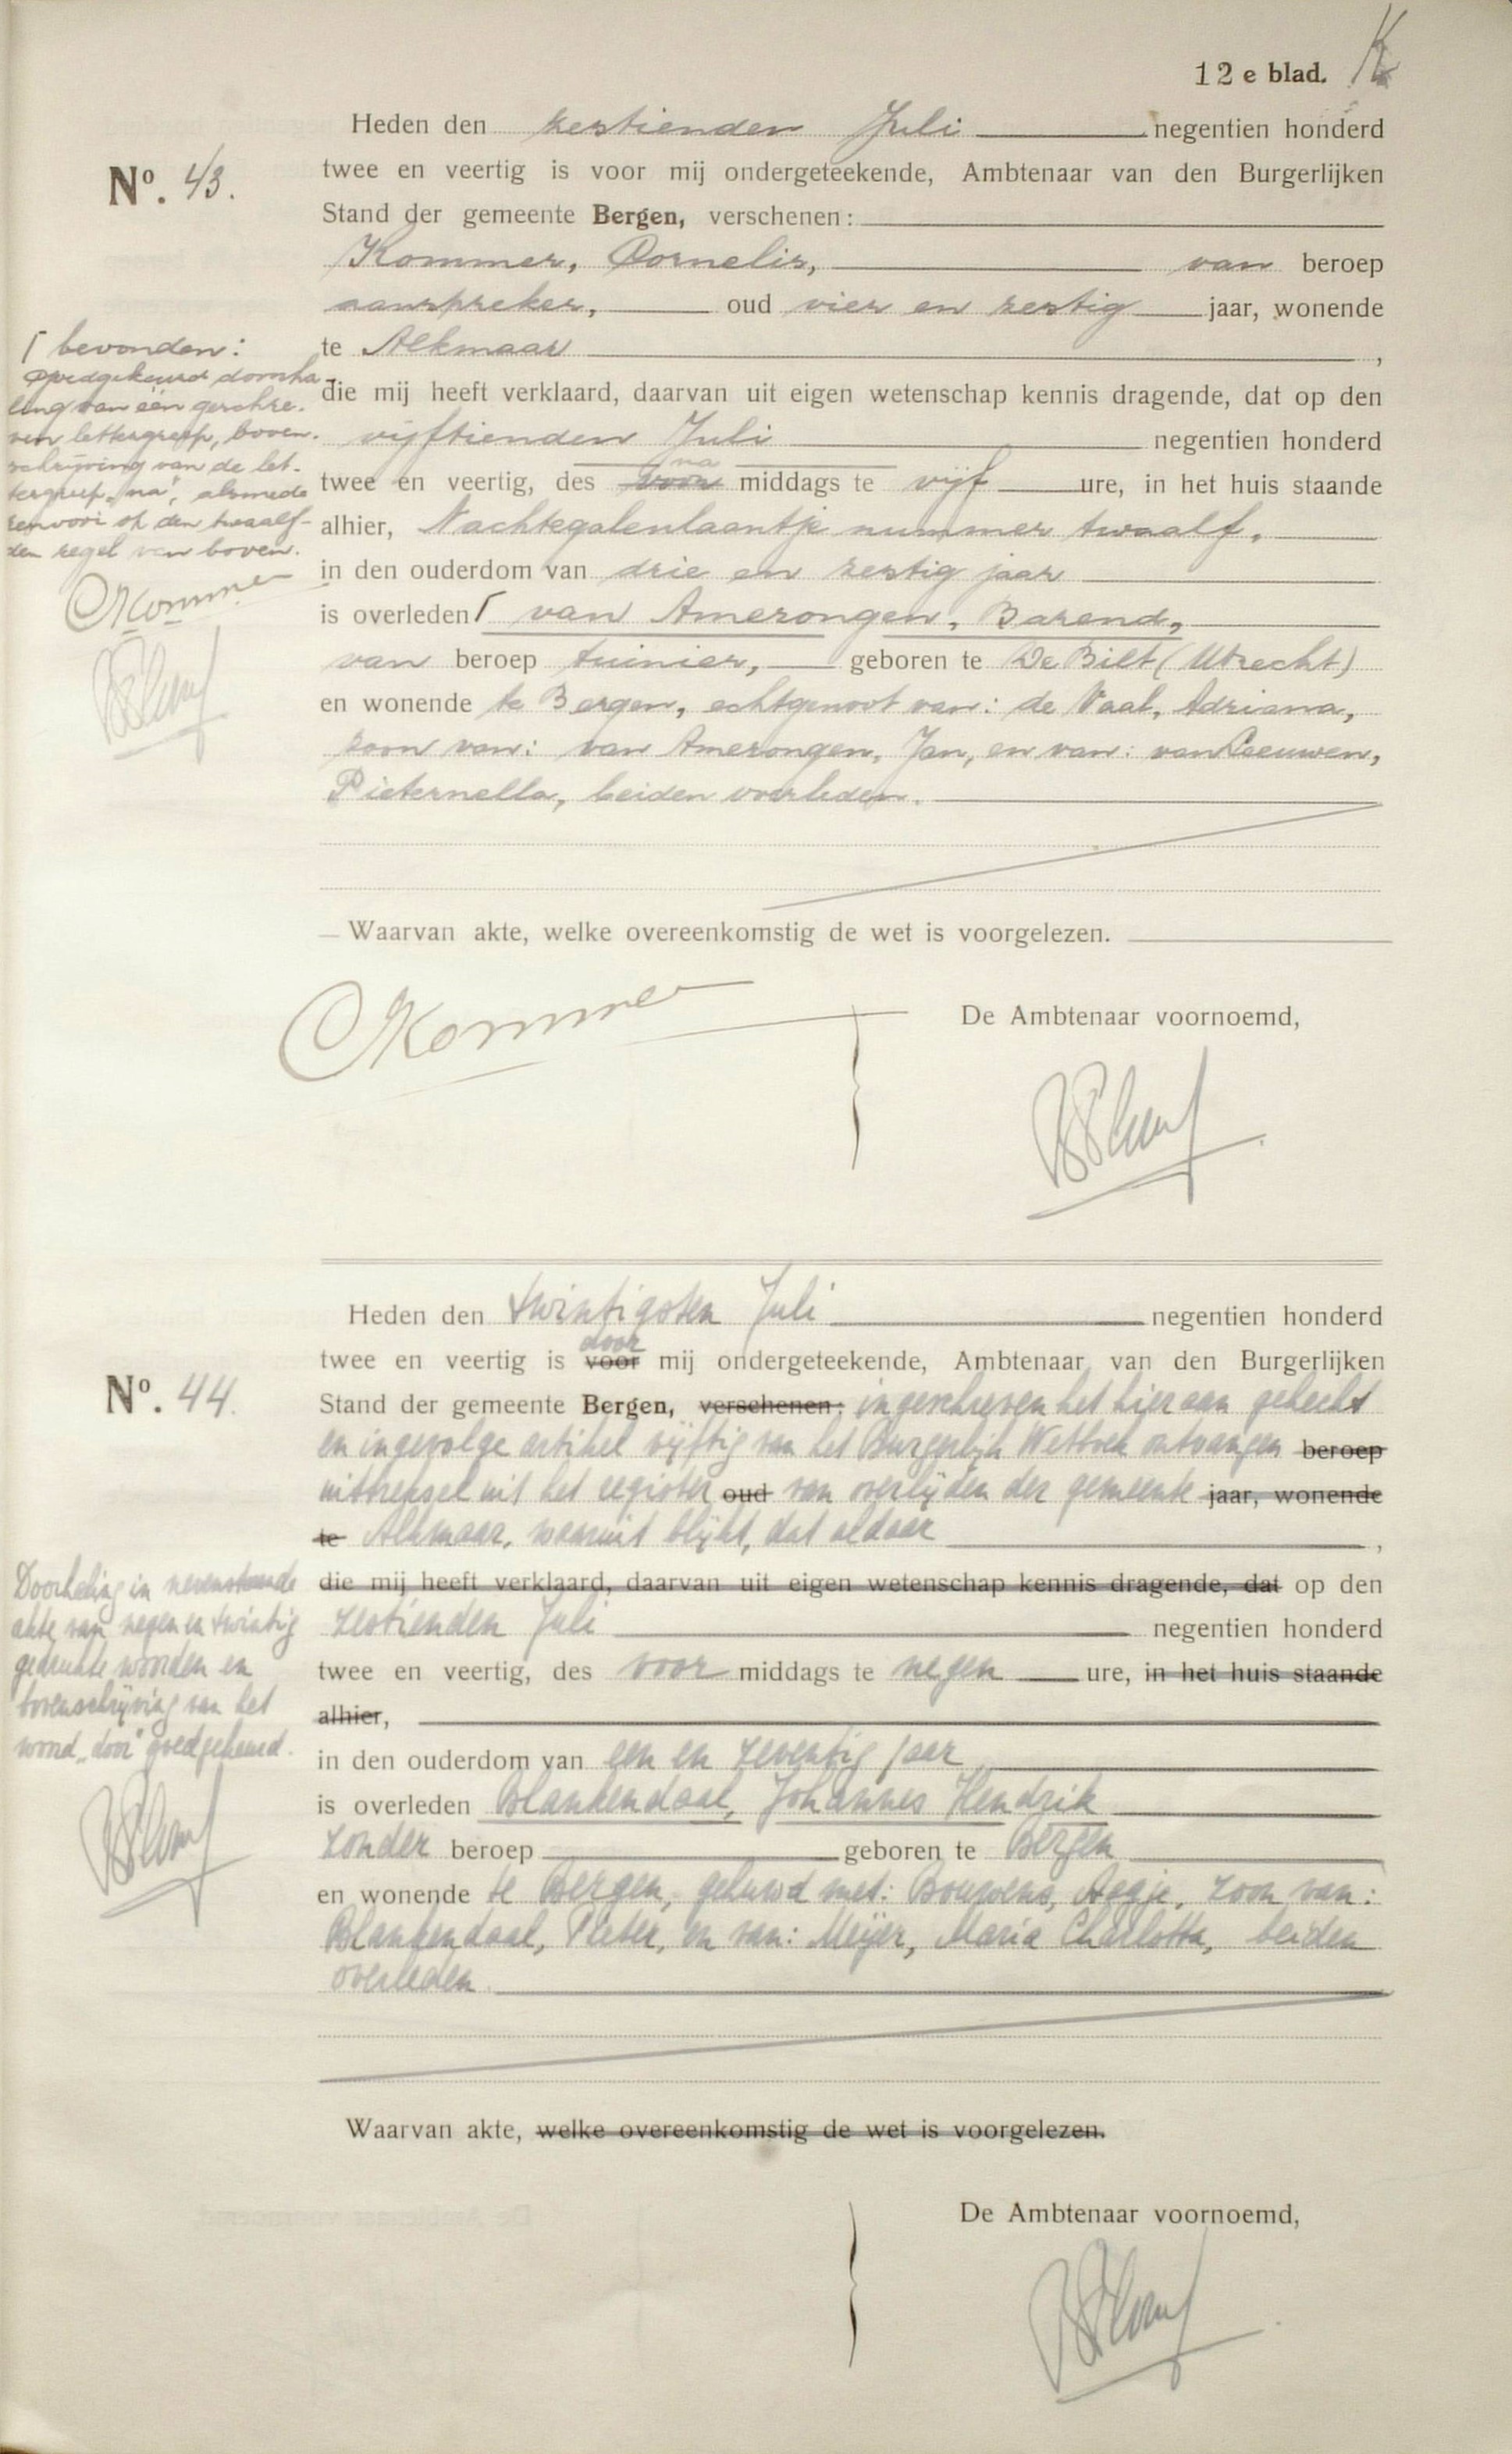 12e blad.
Heden den zestienden Juli negentien honderd
No. 43.
twee en veertig is voor mij ondergeteekende, Ambtenaar van den Burgerlijken
Stand der gemeente Bergen, verschenen:
Kommer, Cornelis, van beroep
aanspreker, oud vier en zestig jaar, wonende
te Alkmaar,
die mij heeft verklaard, daarvan uit eigen wetenschap kennis dragende, dat op den
vijftienden Juli negentien honderd
na
twee en veertig, des voor middags te vijf ure, in het huis staande
alhier, Nachtegalenlaantje nummer twaalf,
in den ouderdom van drie en zestig jaar
is overleden ⌈ van Amerongen, Barend,
van beroep tuinier, geboren te De Bilt (Utrecht)
en wonende te Bergen, echtgenoot van: de Waal, Adriana,
zoon van: van Amerongen, Jan, en van: van Leeuwen,
Pieternella, beiden overleden.
⌈ bevonden:
Goedgekeurd doorha-
ling van één geschre-
ven lettergreep, boven-
schrijving van de let-
tergreep "na", alsmede
renvooi op den twaalf-
den regel van boven.
CKommer
Waarvan akte, welke overeenkomstig de wet is voorgelezen.
CKommer
De Ambtenaar voornoemd,
Heden den twintigsten Juli negentien honderd
door
twee en veertig is voor mij ondergeteekende, Ambtenaar van den Burgerlijken
No. 44.
Stand der gemeente Bergen, verschenen: ingeschreven het hieraan gehecht
en ingevolge artikel vijftig van het Burgerlijk Wetboek ontvangen beroep
uittreksel uit het register oud van overlijden der gemeente jaar, wonende
te Alkmaar, waaruit blijkt, dat aldaar,
die mij heeft verklaard, daarvan uit eigen wetenschap kennis dragende, dat op den
zestienden Juli negentien honderd
twee en veertig, des voor middags te negen ure, in het huis staande
alhier,
in den ouderdom van een en zeventig jaar
is overleden Blankendaal, Johannes Hendrik
zonder beroep geboren te Bergen
en wonende te Bergen, gehuwd met: Bouwens, Aagje, zoon van:
Blankendaal, Pieter, en van: Meijer, Maria Charlotta, beiden
overleden
Doorhaling in nevenstaande
akte van negen en twintig
gedrukte woorden en
bovenschrijving van het
woord "door" goedgekeurd.
Waarvan akte, welke overeenkomstig de wet is voorgelezen.
De Ambtenaar voornoemd,